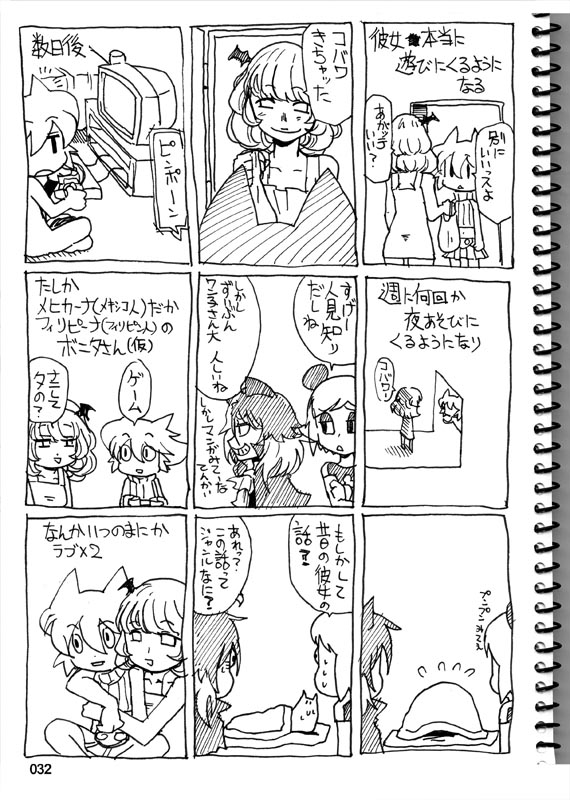 彼女本当に
遊びにくるように
なる
あがって
いい?
別に
いいっスよ
コバワ
きちゃった
数日後
ピンポーン
週に何回か
夜あそびに
くるようになり
コバワー
すげー
人見知り
だしね
しかし
ずいぶん
ワニ子さん大人しいね
たしか
メヒカーナ(メキシコ人)だか
フィリピーナ(フィリピン人)の
ボニータさん(仮)
ゲーム
立して
タの?
プンプンみてえ
もしかして
昔の彼女の
話!?
あれ?
この話って
ジャンルなに?
なんかいつのまにか
ラブ×2
032